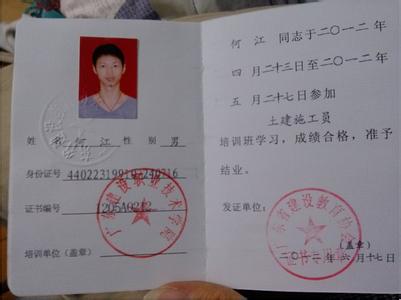 姓名 何江 性别 男
身份证号
证书编号 1205A0212
培训单位（盖章）
广东建设职业技术学院
何江 同志于二〇一二年
四月二十三日至二〇一二年
五月二十七日参加
土建施工员
培训班学习，成绩合格，准予
结业。
发证单位：
广东省建设教育协会
（盖章）
二〇一二年六月十七日